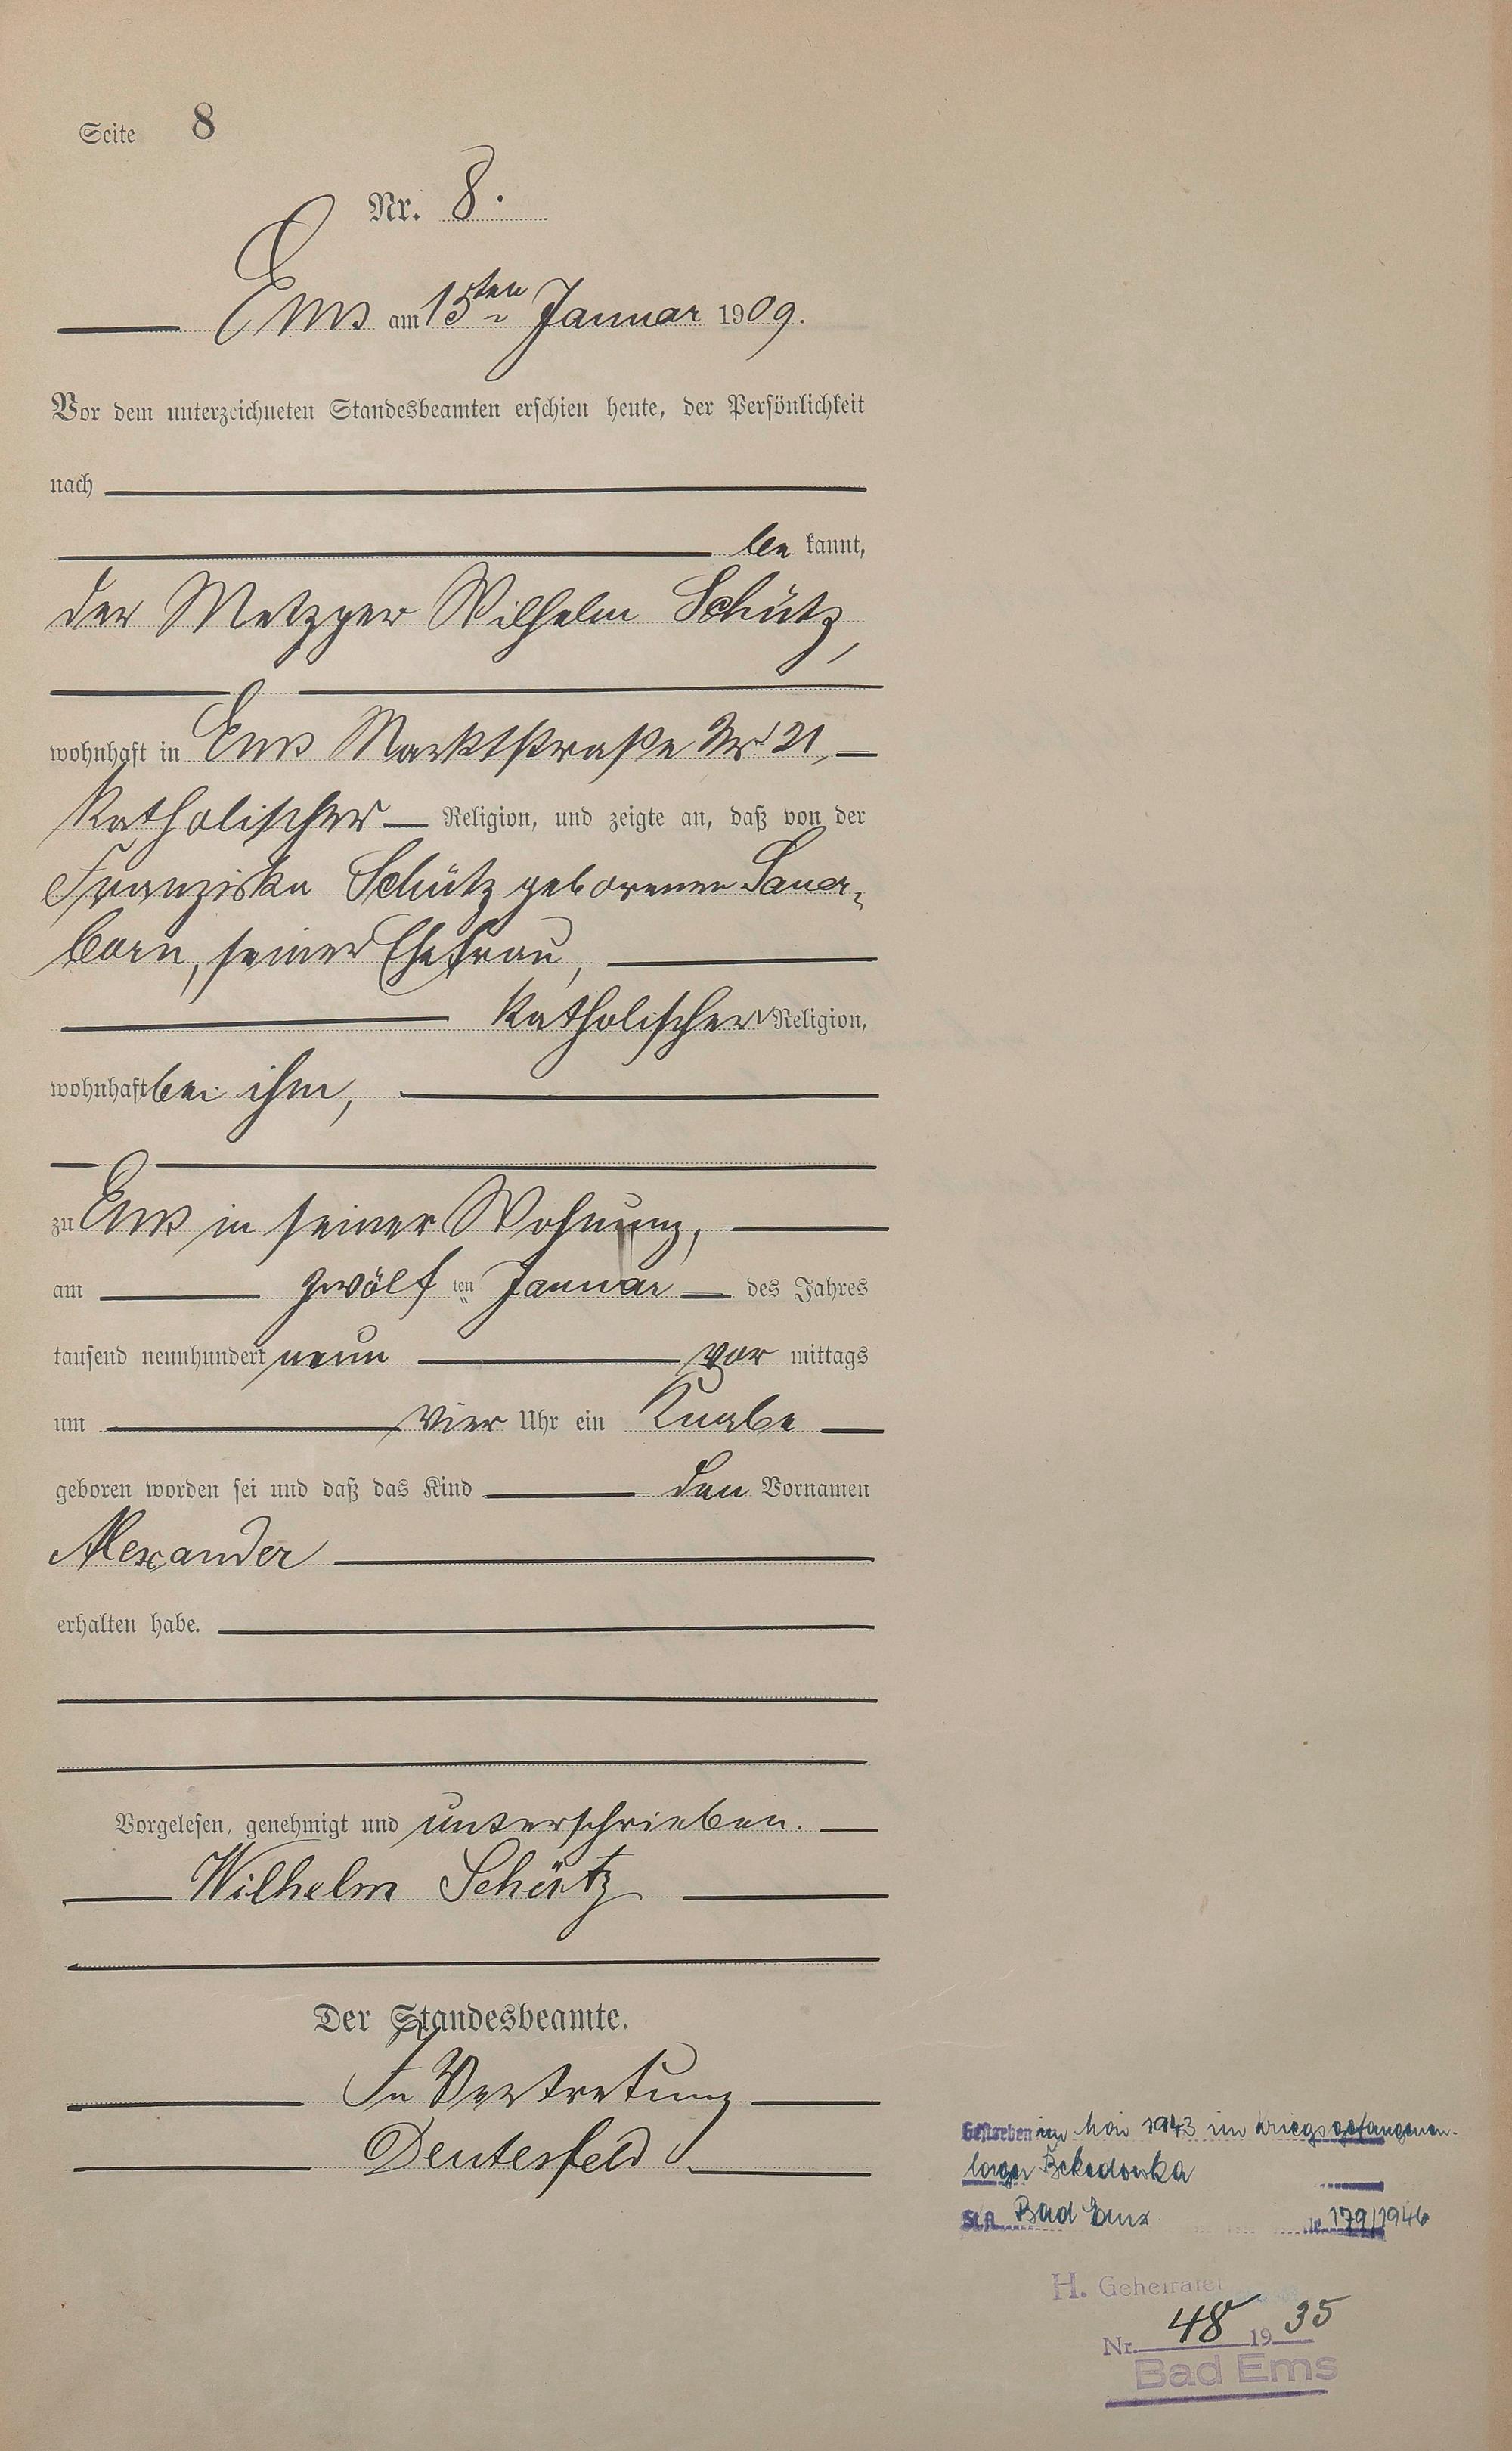 Seite 8
Nr. 8.
Ems am 15ten Januar 1909.
Vor dem unterzeichneten Standesbeamten erschien heute, der Persönlichkeit
nach
be kannt,
der Metzger Wilhelm Schütz,
wohnhaft in Ems Marktstraße Nr. 21,
katholischer Religion, und zeigte an, daß von der
Franziska Schütz geborenen Sauer-
born, seiner Ehefrau,
katholischer Religion,
wohnhaft bei ihm,
zu Ems in seiner Wohnung,
am zwölf ten Januar des Jahres
tausend neunhundert neun vor mittags
um vier Uhr ein Knabe
geboren worden sei und daß das Kind den Vornamen
Alexander
erhalten habe.
Vorgelesen, genehmigt und unterschrieben.
Wilhelm Schütz
Der Standesbeamte.
In Vertretung
Deutesfeld
Gestorben im Mai 1943 im Kriegsgefangenen-
lager Bekedowka
St.A. Bad Ems Nr. 179/1946
H. Geheiratet
Nr. 48 1935
Bad Ems